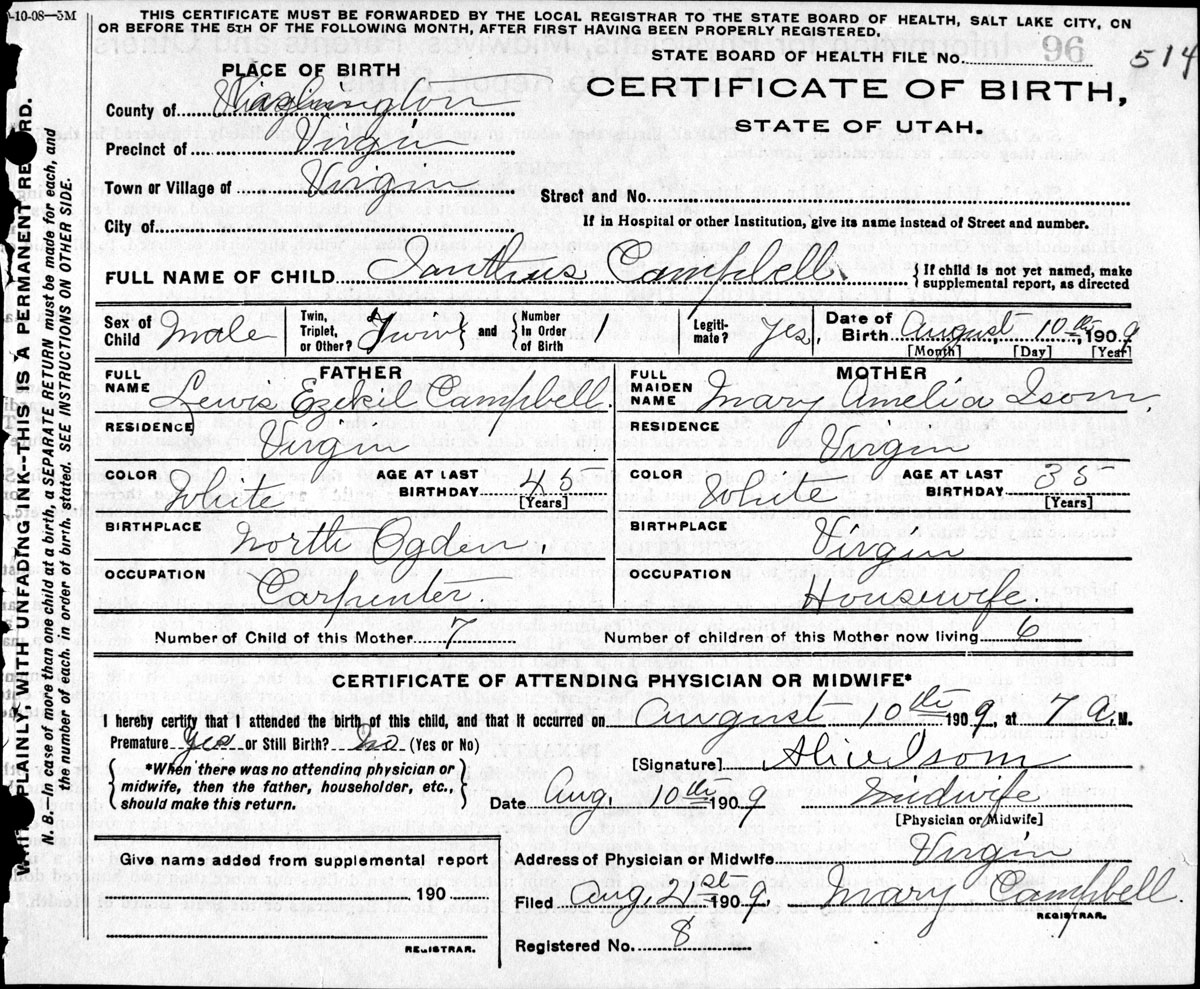 -10-08—5M
THIS CERTIFICATE MUST BE FORWARDED BY THE LOCAL REGISTRAR TO THE STATE BOARD OF HEALTH, SALT LAKE CITY, ON
OR BEFORE THE 5TH OF THE FOLLOWING MONTH, AFTER FIRST HAVING BEEN PROPERLY REGISTERED.
STATE BOARD OF HEALTH FILE No. 96 514
PLACE OF BIRTH
CERTIFICATE OF BIRTH,
STATE OF UTAH.
County of Washington
Precinct of Virgin
Town or Village of Virgin
Street and No.
City of
If in Hospital or other Institution, give its name instead of Street and number.
FULL NAME OF CHILD Ianthus Campbell
{ If child is not yet named, make
supplemental report, as directed
Sex of Child Male
Twin, Triplet, or Other? Twin } and { Number In Order of Birth 1
Legiti- mate? Yes,
Date of Birth August, 10th, 1909
[Month] [Day] [Year]
FATHER
FULL NAME Lewis Ezekil Campbell.
RESIDENCE Virgin
COLOR White AGE AT LAST BIRTHDAY 45 [Years]
BIRTHPLACE North Ogden.
OCCUPATION Carpenter.
MOTHER
FULL MAIDEN NAME Mary Amelia Isom,
RESIDENCE Virgin
COLOR White AGE AT LAST BIRTHDAY 35 [Years]
BIRTHPLACE Virgin
OCCUPATION Housewife.
Number of Child of this Mother 7 Number of children of this Mother now living 6
CERTIFICATE OF ATTENDING PHYSICIAN OR MIDWIFE*
I hereby certify that I attended the birth of this child, and that it occurred on August 10th 1909, at 7 A.M.
Premature Yes or Still Birth? No (Yes or No)
{ *When there was no attending physician or
midwife, then the father, householder, etc.,
should make this return. }
[Signature] Alice Isom
Date Aug. 10th 1909 Midwife
[Physician or Midwife]
Give name added from supplemental report
190
REGISTRAR.
Address of Physician or Midwife Virgin
Filed Aug. 21st 1909. Mary Campbell.
REGISTRAR.
Registered No. 8
PLAINLY WITH UNFADING INK--THIS IS A PERMANENT RECORD.
N. B. In case of more than one child at a birth, a SEPARATE RETURN must be made for each, and
the number of each, in order of birth, stated. SEE INSTRUCTIONS ON OTHER SIDE.